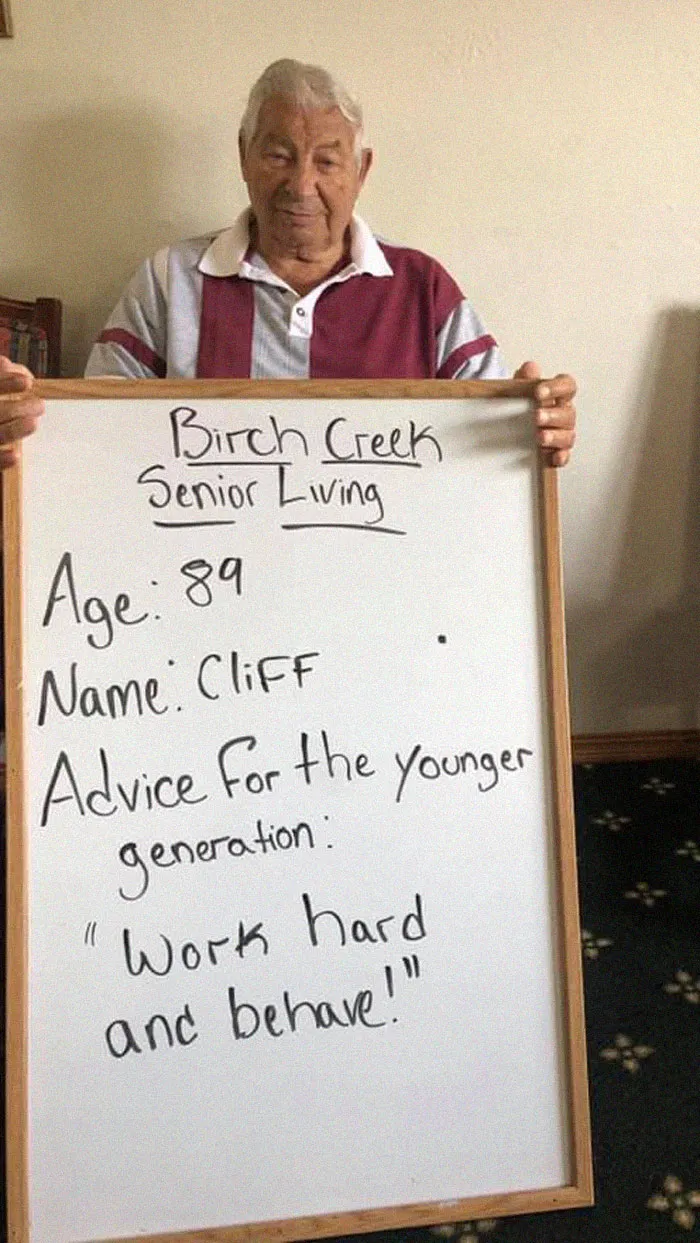 Birch Creek
Senior Living
Age: 89
Name: CliFF
Advice For the younger
generation:
"Work hard
and behave!"